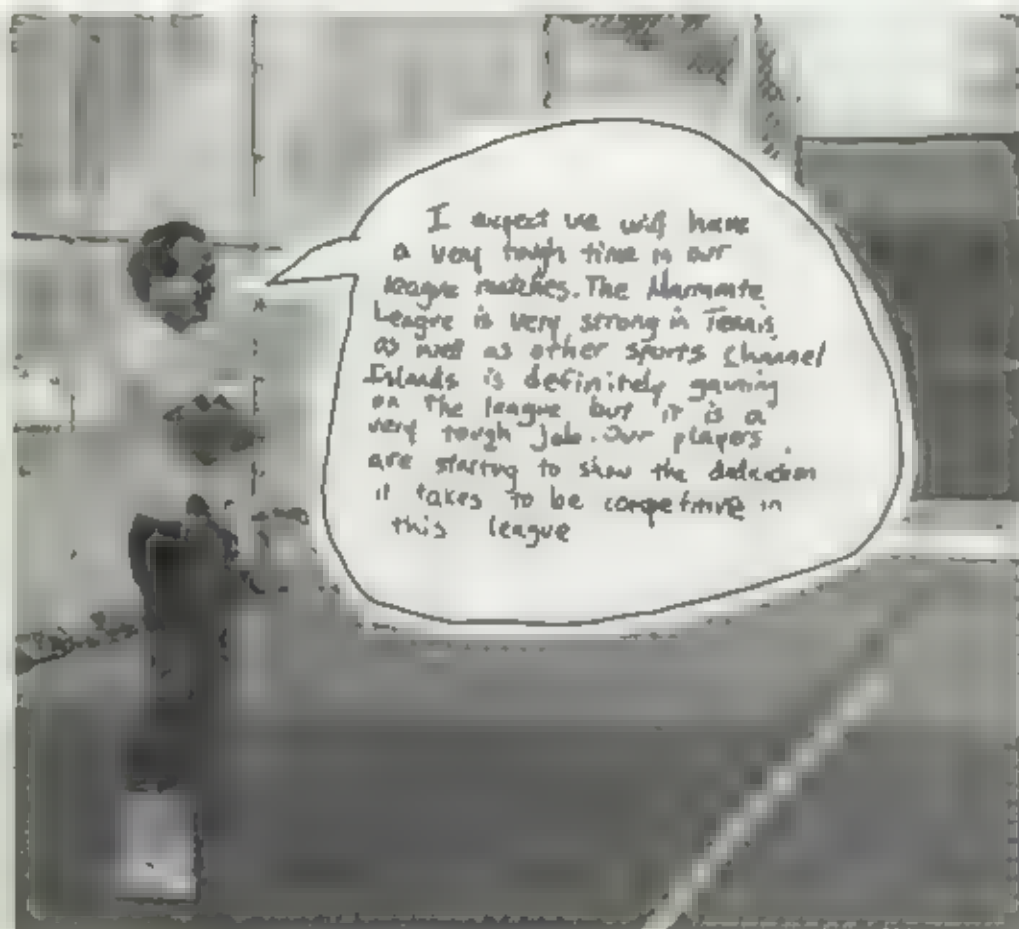 I expect we will have
a very tough time in our
league matches. The Marmonte
League is very strong in Tennis
as well as other sports Channel
Islands is definitely gaining
on the league but it is a
very tough job. Our players
are starting to show the dedication
it takes to be competitive in
this league